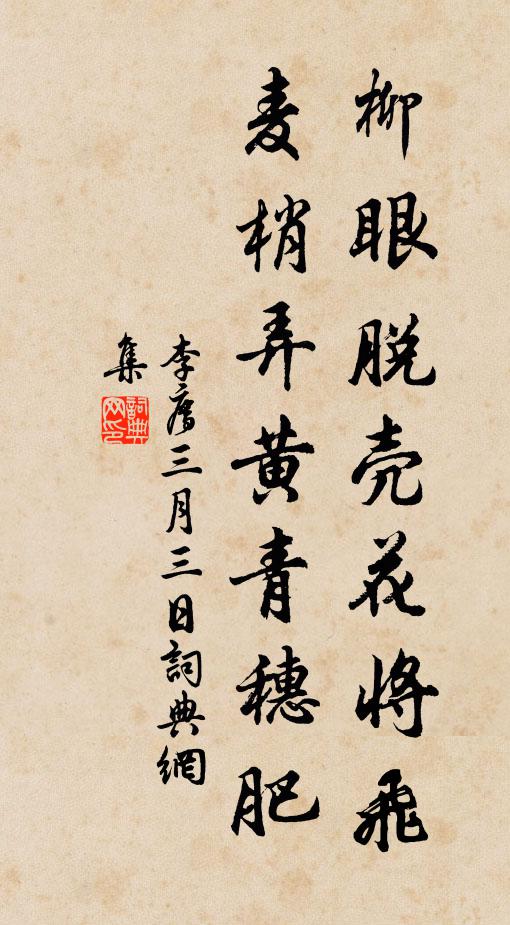 柳眼脱壳花将飛
麦梢弄黄青穗肥
李廌三月三日詞典網
集
詞典
网印